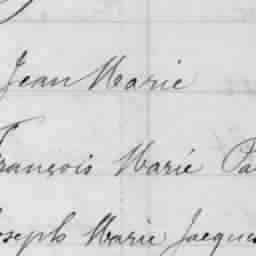 Jean Marie
François Marie
Joseph Marie Jacques